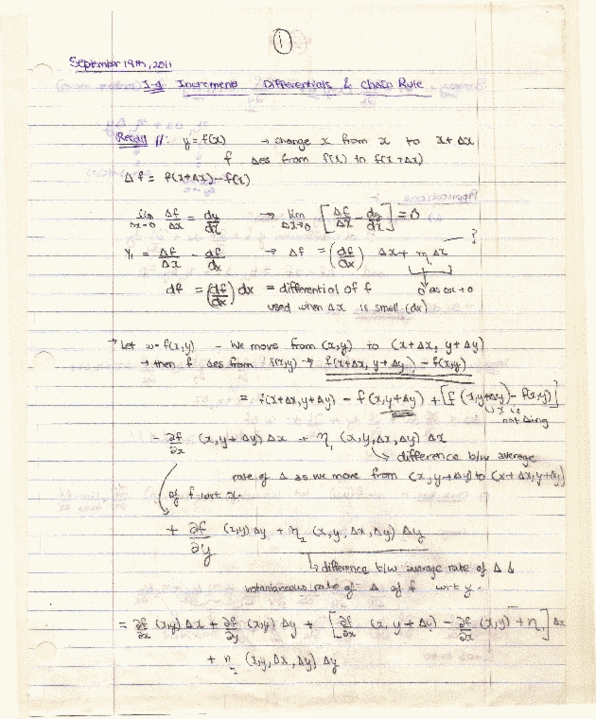 1
September 19th, 2011
Increments Differentials & Chain Rule
Recall //: y = f(x) → change x from x to x+Δx
f Δes from f(x) to f(x+Δx)
Δf = f(x+Δx) - f(x)
lim Δx→0 Δf/Δx = dy/dx → lim Δx→0 [Δf/Δx - dy/dx] = 0
η = Δf/Δx - df/dx → Δf = (df/dx) Δx + η Δx
df = (df/dx) dx = differential of f 0 as Δx→0
used when Δx is small (dx)
→ Let w = f(x,y) - We move from (x,y) to (x+Δx, y+Δy)
→ then f Δes from f(x,y) → f(x+Δx, y+Δy) - f(x,y)
= f(x+Δx, y+Δy) - f(x, y+Δy) + [f(x, y+Δy) - f(x,y)]
x is
not Δing
= ∂f/∂x (x, y+Δy) Δx + η₁ (x, y, Δx, Δy) Δx
↳ difference b/w average
rate of Δ as we move from (x, y+Δy) to (x+Δx, y+Δy)
of f wrt x.
+ ∂f/∂y (x,y) Δy + η₂ (x, y, Δx, Δy) Δy
↳ difference b/w average rate of Δ &
instantaneous rate of Δ of f wrt y.
= ∂f/∂x (x,y) Δx + ∂f/∂y (x,y) Δy + [∂f/∂x (x, y+Δy) - ∂f/∂x (x,y) + η₁] Δx
+ η₂ (x, y, Δx, Δy) Δy